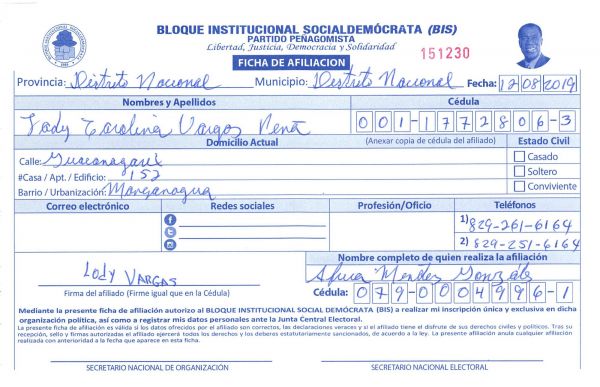 BLOQUE INSTITUCIONAL SOCIALDEMÓCRATA (BIS)
PARTIDO PEÑAGOMISTA
Libertad, Justicia, Democracia y Solidaridad
151230
FICHA DE AFILIACION
Provincia: Distrito Nacional Municipio: Distrito Nacional Fecha: 12/08/2019
Nombres y Apellidos Cédula
Lady Carolina Vargas Pena 001-1772806-3
Domicilio Actual (Anexar copia de cédula del afiliado) Estado Civil
Calle: Guacanagarix Casado
#Casa / Apt. / Edificio: 152 Soltero
Barrio / Urbanización: Manganagua Conviviente
Correo electrónico Redes sociales Profesión/Oficio Teléfonos
1) 829-261-6164
2) 829-251-6164
Nombre completo de quien realiza la afiliación
Lody VARGAS Mendez Gonzáles
Firma del afiliado (Firme igual que en la Cédula) Cédula: 079-0004996-1
Mediante la presente ficha de afiliación autorizo al BLOQUE INSTITUCIONAL SOCIAL DEMÓCRATA (BIS) a realizar mi inscripción única y exclusiva en dicha
organización política, así como a registrar mis datos personales ante la Junta Central Electoral.
La presente ficha de afiliación es válida si los datos ofrecidos por el afiliado son correctos, las declaraciones veraces y si el afiliado tiene el disfrute de sus derechos civiles y políticos. Tras su
recepción, sello y firmas autorizadas el afiliado ejercerá todos los derechos y los deberes estatutariamente sancionados, de acuerdo a la ley. La presente afiliación anula cualquier afiliación
realizada con anterioridad a la fecha que aparece en esta ficha.
SECRETARIO NACIONAL DE ORGANIZACIÓN SECRETARIO NACIONAL ELECTORAL